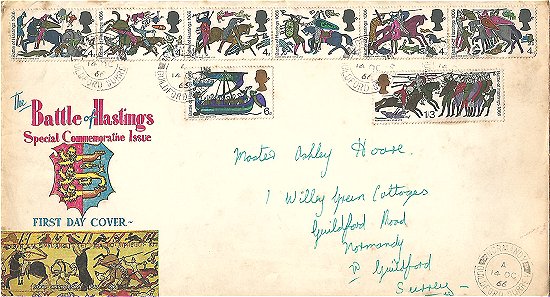 4
4
4
4
4
4
14 OC
66
6
1/3
The
Battle of Hastings
Special Commemorative Issue
FIRST DAY COVER~
Master Ashley Hoare.
1 Willey Green Cottages
Guildford Road
Normandy
Nr Guildford
Surrey-
A
14 OC
66